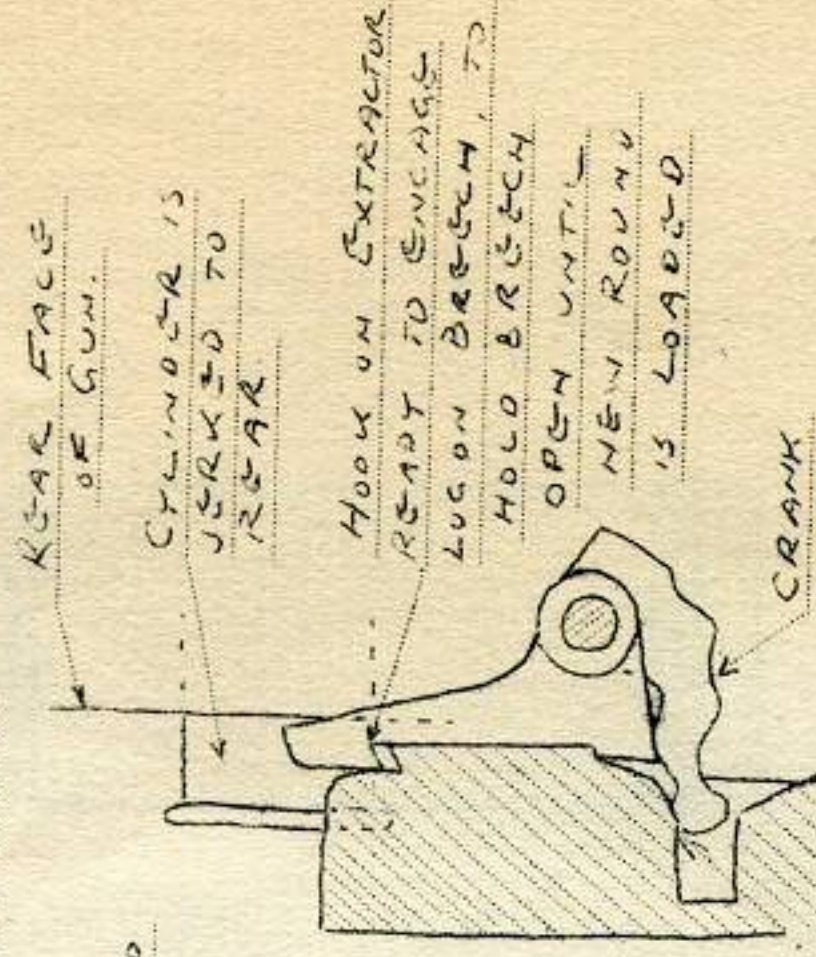 REAR FACE
OF GUN.
CYLINDER IS
JERKED TO
REAR
HOOK ON EXTRACTOR
READY TO ENGAGE
LUG ON BREECH, TO
HOLD BREECH
OPEN UNTIL
NEW ROUND
IS LOADED
CRANK